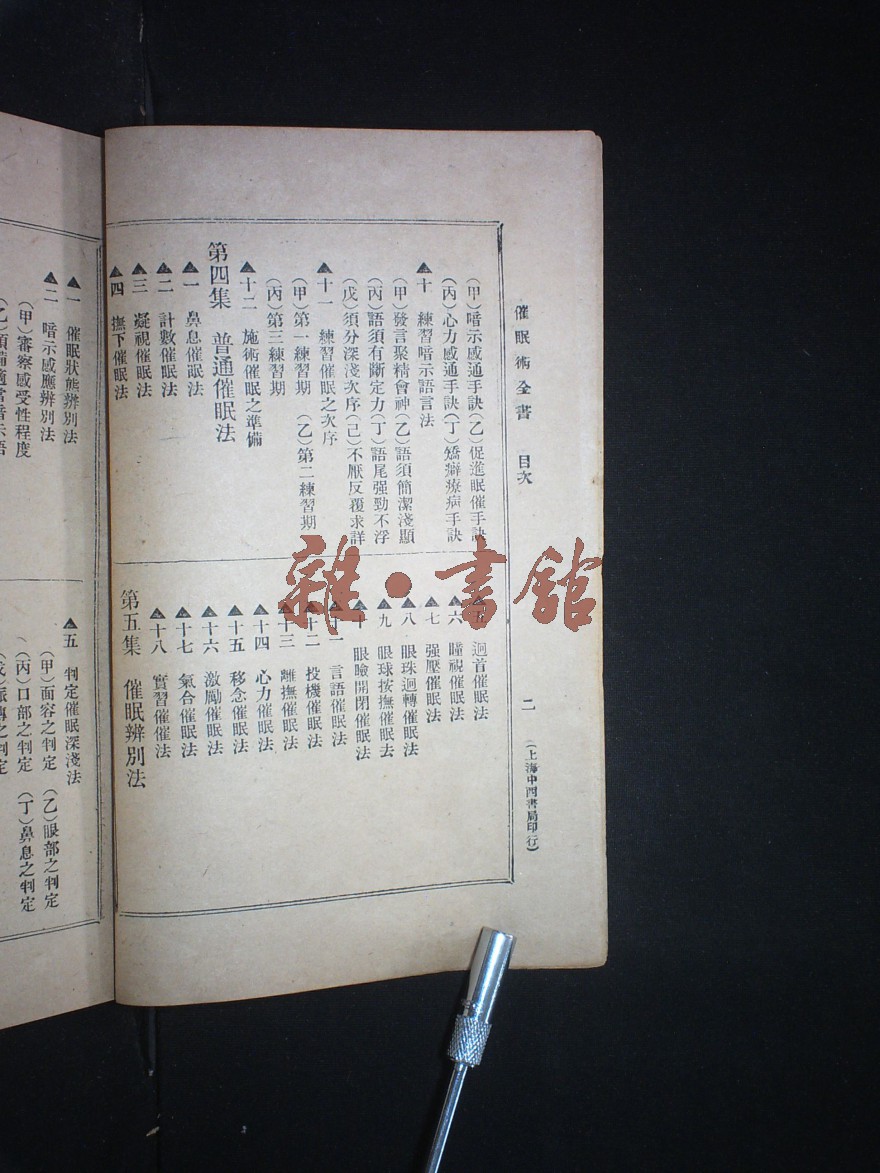 催眠術全書 目次
二
(上海中西書局印行)
(甲)喑示感通手訣(乙)促進眠催手訣
(丙)心力感通手訣(丁)矯癖療病手訣
▲十 練習喑示語言法
(甲)發言聚精會神(乙)語須簡潔淺顯
(丙)語須有斷定力(丁)語尾强勁不浮
(戊)須分深淺次序(己)不厭反覆求詳
▲十一 練習催眠之次序
(甲)第一練習期 (乙)第二練習期
(丙)第三練習期
▲十二 施術催眠之準備
第四集 普通催眠法
▲一 鼻息催眠法
▲二 計數催眠法
▲三 凝視催眠法
▲四 撫下催眠法
▲五 迴首催眠法
▲六 瞳視催眠法
▲七 强壓催眠法
▲八 眼珠迴轉催眠法
▲九 眼球按撫催眠法
▲十 眼瞼開閉催眠法
▲十一 言語催眠法
▲十二 投機催眠法
▲十三 離撫催眠法
▲十四 心力催眠法
▲十五 移念催眠法
▲十六 激勵催眠法
▲十七 氣合催眠法
▲十八 實習催催法
第五集 催眠辨別法
▲一 催眠狀態辨別法
▲二 喑示感應辨別法
(甲)審察感受性程度
▲五 判定催眠深淺法
(甲)面容之判定 (乙)眼部之判定
(丙)口部之判定 (丁)鼻息之判定
雜·書館